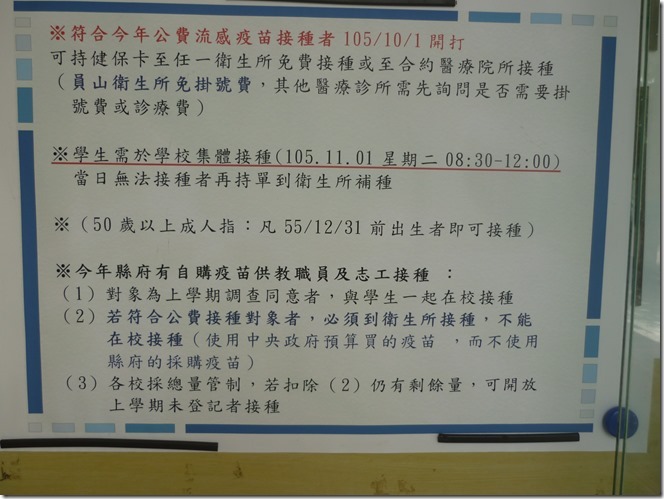 ※符合今年公費流感疫苗接種者 105/10/1 開打
可持健保卡至任一衛生所免費接種或至合約醫療院所接種
（員山衛生所免掛號費，其他醫療診所需先詢問是否需要掛
號費或診療費）
※學生需於學校集體接種(105.11.01 星期二 08:30-12:00)
當日無法接種者再持單到衛生所補種
※（50 歲以上成人指：凡 55/12/31 前出生者即可接種）
※今年縣府有自購疫苗供教職員及志工接種 ：
（1）對象為上學期調查同意者，與學生一起在校接種
（2）若符合公費接種對象者，必須到衛生所接種，不能
在校接種（使用中央政府預算買的疫苗 ，而不使用
縣府的採購疫苗）
（3）各校採總量管制，若扣除（2）仍有剩餘量，可開放
上學期未登記者接種